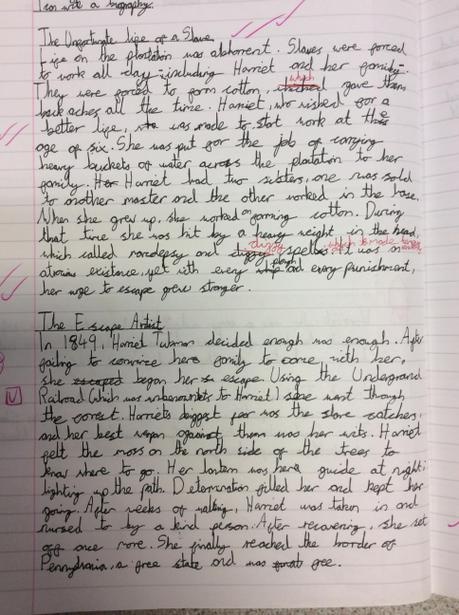 Icon with a biography.
The Unfortunate life of a Slave
Life on the plantation was abhorrent. Slaves were forced
to work all day - including Harriet and her family -
which
They were forced to farm cotton, gave them
back aches all the time. Harriet, who wished for a
better life, was made to start work at the
age of six. She was put for the job of carrying
heavy buckets of water across the plantation to her
family. Harriet had two sisters, one was sold
to another master and the other worked in the base.
When she grew up, she worked on farming cotton. During
that time she was hit by a heavy weight in the head,
dizzy
which called and spells. It was an
existence, yet with every and every punishment,
her urge to escape grew stronger.
The Escape Artist
In 1849, Harriet Tubman decided enough was enough. After
failing to convince her family to come with her,
she escaped began her escape Using the Underground
Railroad (which was to Harriet) she went though
the forest. Harriet's biggest fear was the slave catchers,
and her best wepon against them was her wits. Harriet
felt the moss on the north side of the trees to
know where to go. Her lantern was her guide at night;
lighting up the path. Determination filled her and kept her
going. After weeks of walking, Harriet was taken in and
nursed to by a kind person. After recovering, she set
off once more. She finally reached the border of
Pennsylvania, a free state and was free.
U